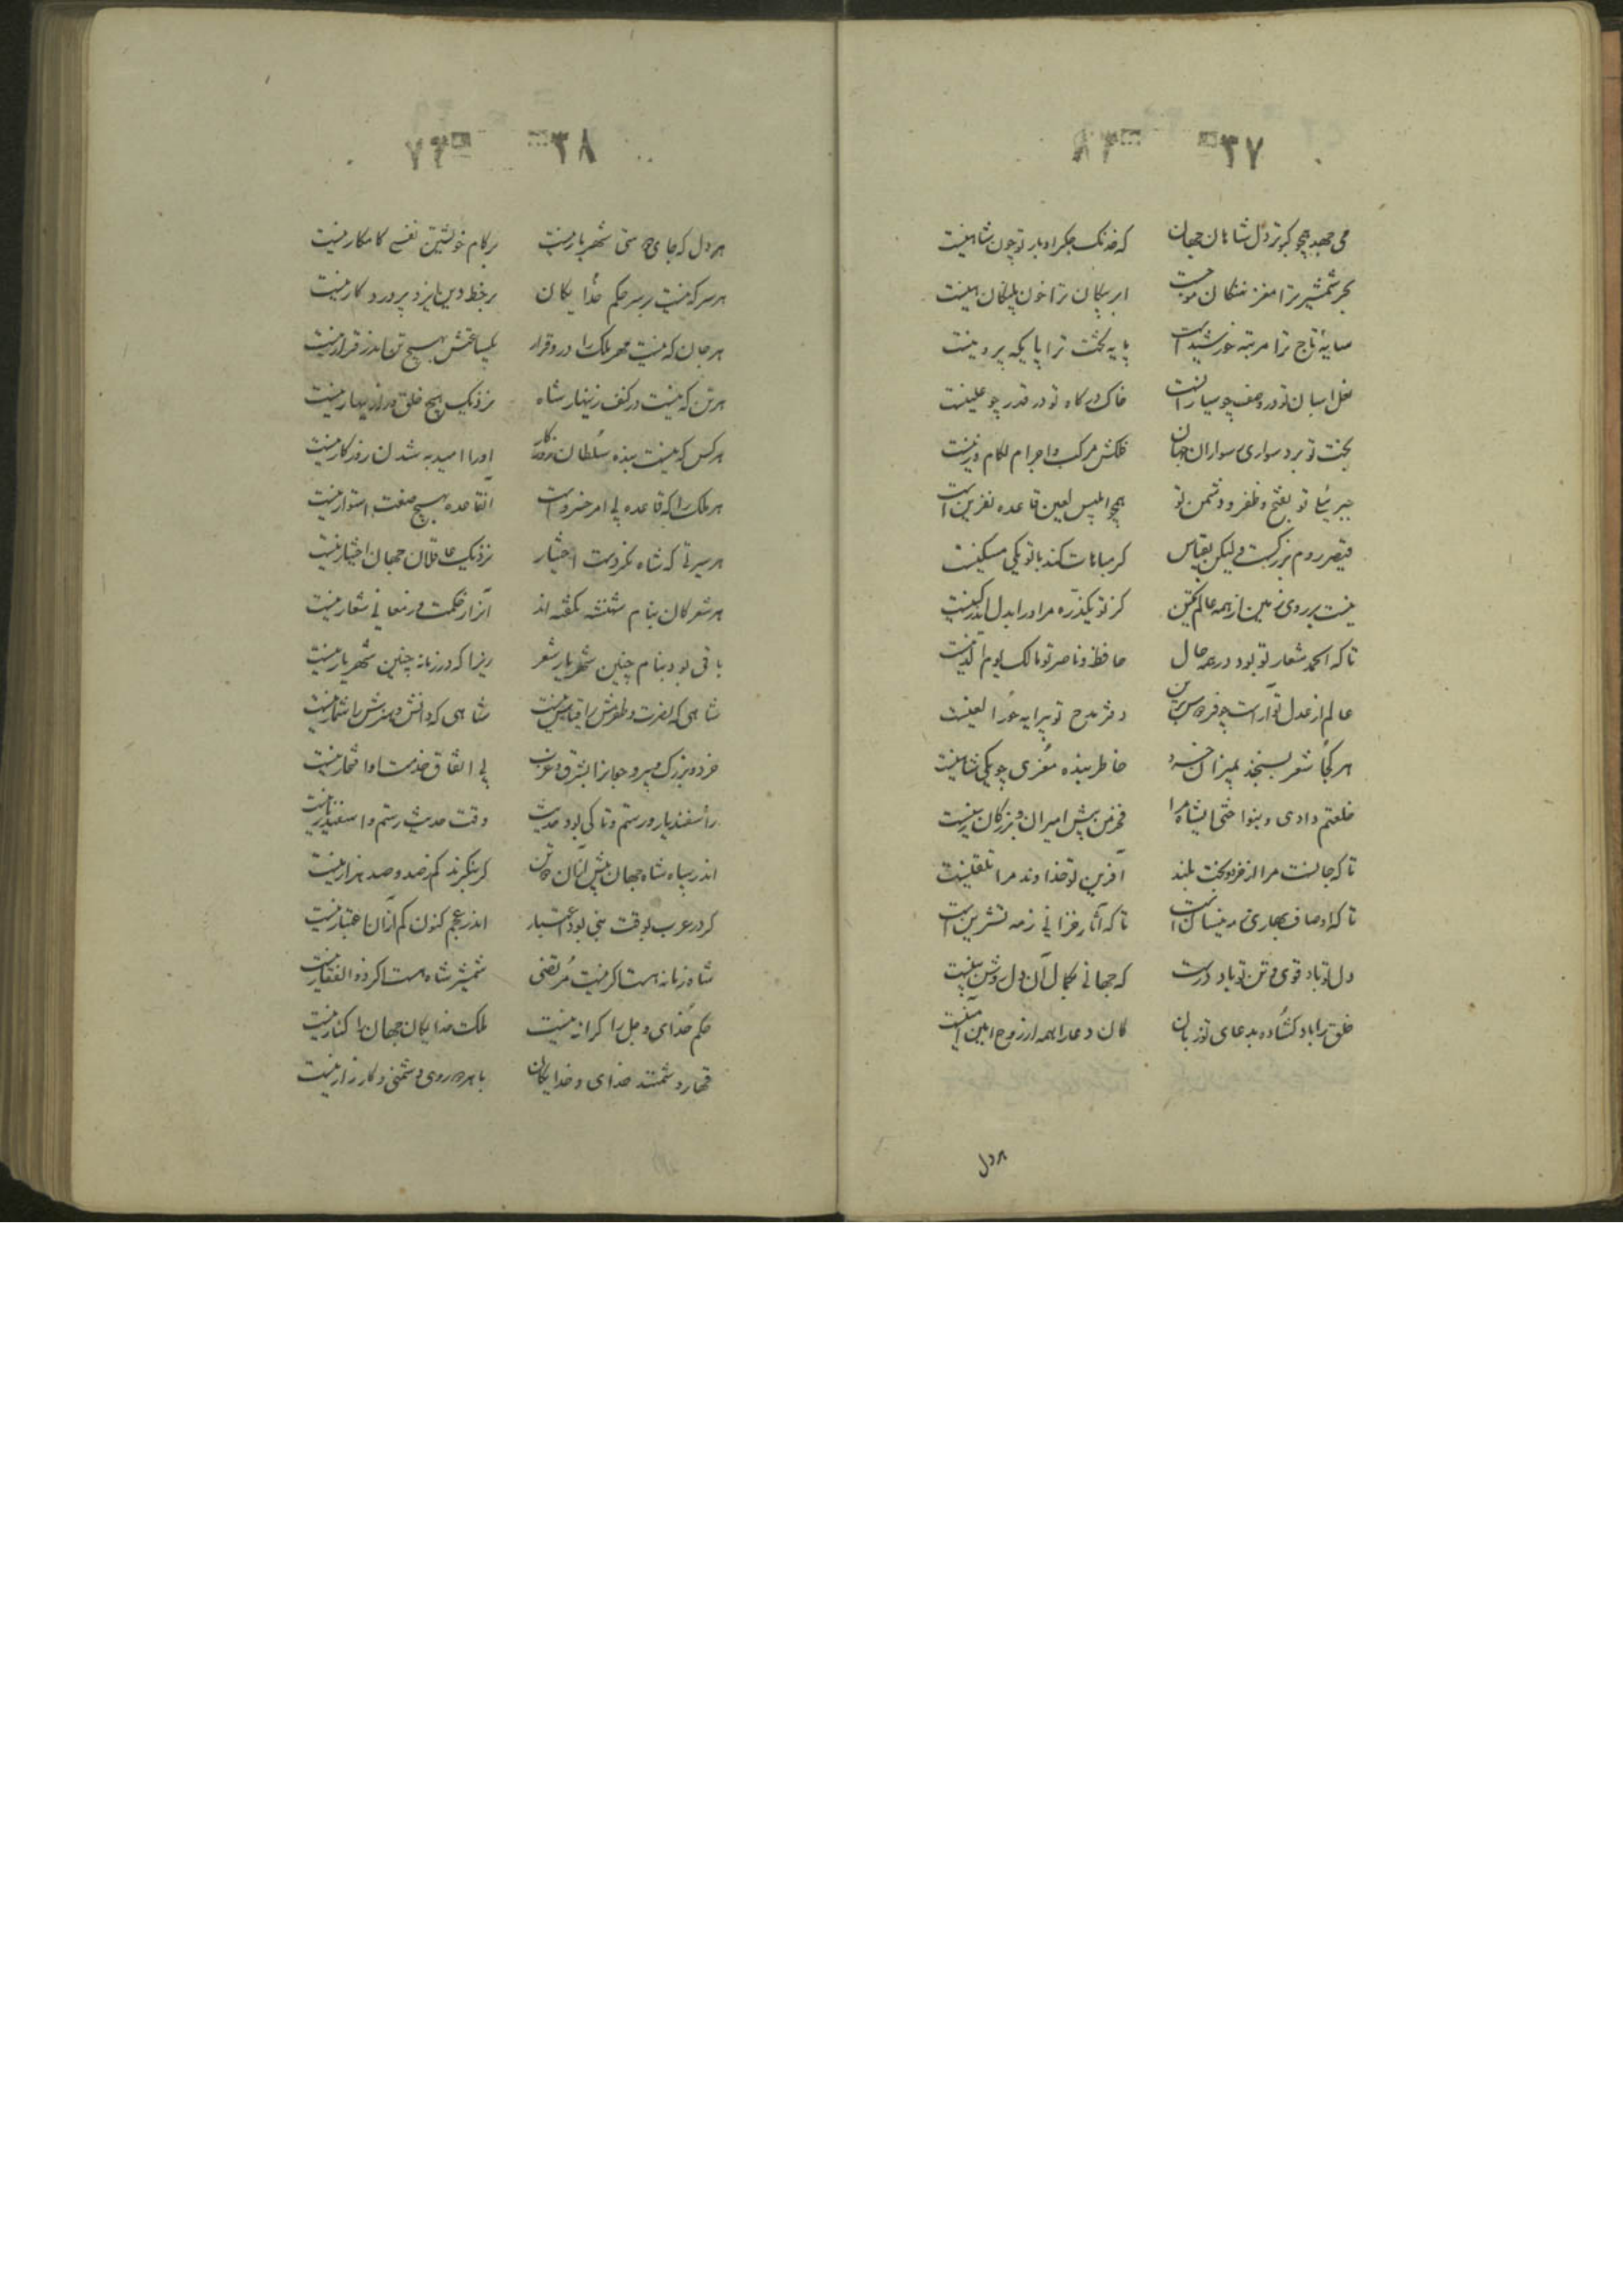 ۳۷ ۸۳
می جهد همچو کبوتر دل شاهان جهان که خدنک جکر اوبار تو چون شاهینست
بحر شمشیر ترا مغز نهنکان موجست ابر پیکان ترا خون پلنکان هینست
سایهٔ تاج ترا مرتبه خورشیدست پایه تخت ترا پایکه پروینست
نعل اسبان تو در وصف چو سیارانست خاک درکاه تو در قدر چو علیینست
بخت تو برد سواری سواران جهان فلکش مرکب و اجرام لکام و زینست
جبرئیل تو بفتح و ظفر و دشمن تو همچو ابلیس لعین قاعده نفرین است
قیصر روم بزرکست ولیکن بقیاس کر مباهات کند با تو یکی مسکینست
نیست بر روی زمین از همه عالم یکتن کز تو یکذره مر او را بدل اندر کینست
تا که الحمد شعار تو بود در همه حال حافظ و ناصر تو مالک یوم الدینست
عالم از عدل تو آراست چو فردوس برین دفتر مدح تو پیرایه حور العینست
هر کجا شعر بسنجند بمیزان خرد خاطر بنده معزی چو یکی شاهینست
خلعتم دادی و بنواختی ایشاه مرا فخر من پیش امیران و بزرکان زینست
تا که جانست مرا از فر و بخت بلند آفرین تو خداوند مرا تلقینست
تا که اوصاف بهاری مه نیسان است تا که آثار خزانی ز مه تشرین است
دل تو باد قوی و تن تو باد درست که جهانی بکمال آن دل روشن بینست
خلق را باد کشاده بدعای تو زبان کان دعا را همه از روح امین آمینست
هر دل
۳۸ ۷۳
هر دل که جای دوستی شهریار نیست بر کام خویشتن نفسی کامکار نیست
هر سر که نیست بر سر حکم خدایکان بر خط دین ایزد پروردکار نیست
هر جان که نیست مهر ملک را درو قرار یکساعتش بهیچ تن اندر قرار نیست
هر تن که نیست در کنف زینهار شاه نزدیک هیچ خلق ورا زینهار نیست
هر کس که نیست بنده سلطان روزکار او را امید به شدن روزکار نیست
هر ملک را که قاعده بی امر خسروست آنقاعده بهیچ صفت استوار نیست
هر سیرتی که شاه نکردست اختیار نزدیک عاقلان جهان اختیار نیست
هر شعر کان بنام شهنشه نکفته اند آنرا ز حکمت و ز معانی شعار نیست
باقی بود بنام چنین شهریار شعر زیرا که در زمانه چنین شهریار نیست
شاهی که نصرت و ظفرش را قیاس نیست شاهی که دانش و هنرش را شمار نیست
خرد و بزرک و پیر و جوانرا بشرق و غرب بی اتفاق خدمت او افتخار نیست
ز اسفندیار و رستم تا کی بود حدیث وقت حدیث رستم و اسفندیار نیست
اندر سپاه شاه جهان پیش ازان دو تن کر بنکرند کم ز صد و صد هزار نیست
کر در عرب بوقت نبی بود اعتبار اندر عجم کنون کم ازان اعتبار نیست
شاه زمانه هست اکر نیست مرتضی شمشیر شاه هست اکر ذوالفقار نیست
حکم خدای و جل را کرانه نیست ملکت خدایکان جهان را کنار نیست
قهار دشمنند خدای و خدایکان با هر دو روی دشمنی و کارزار نیست